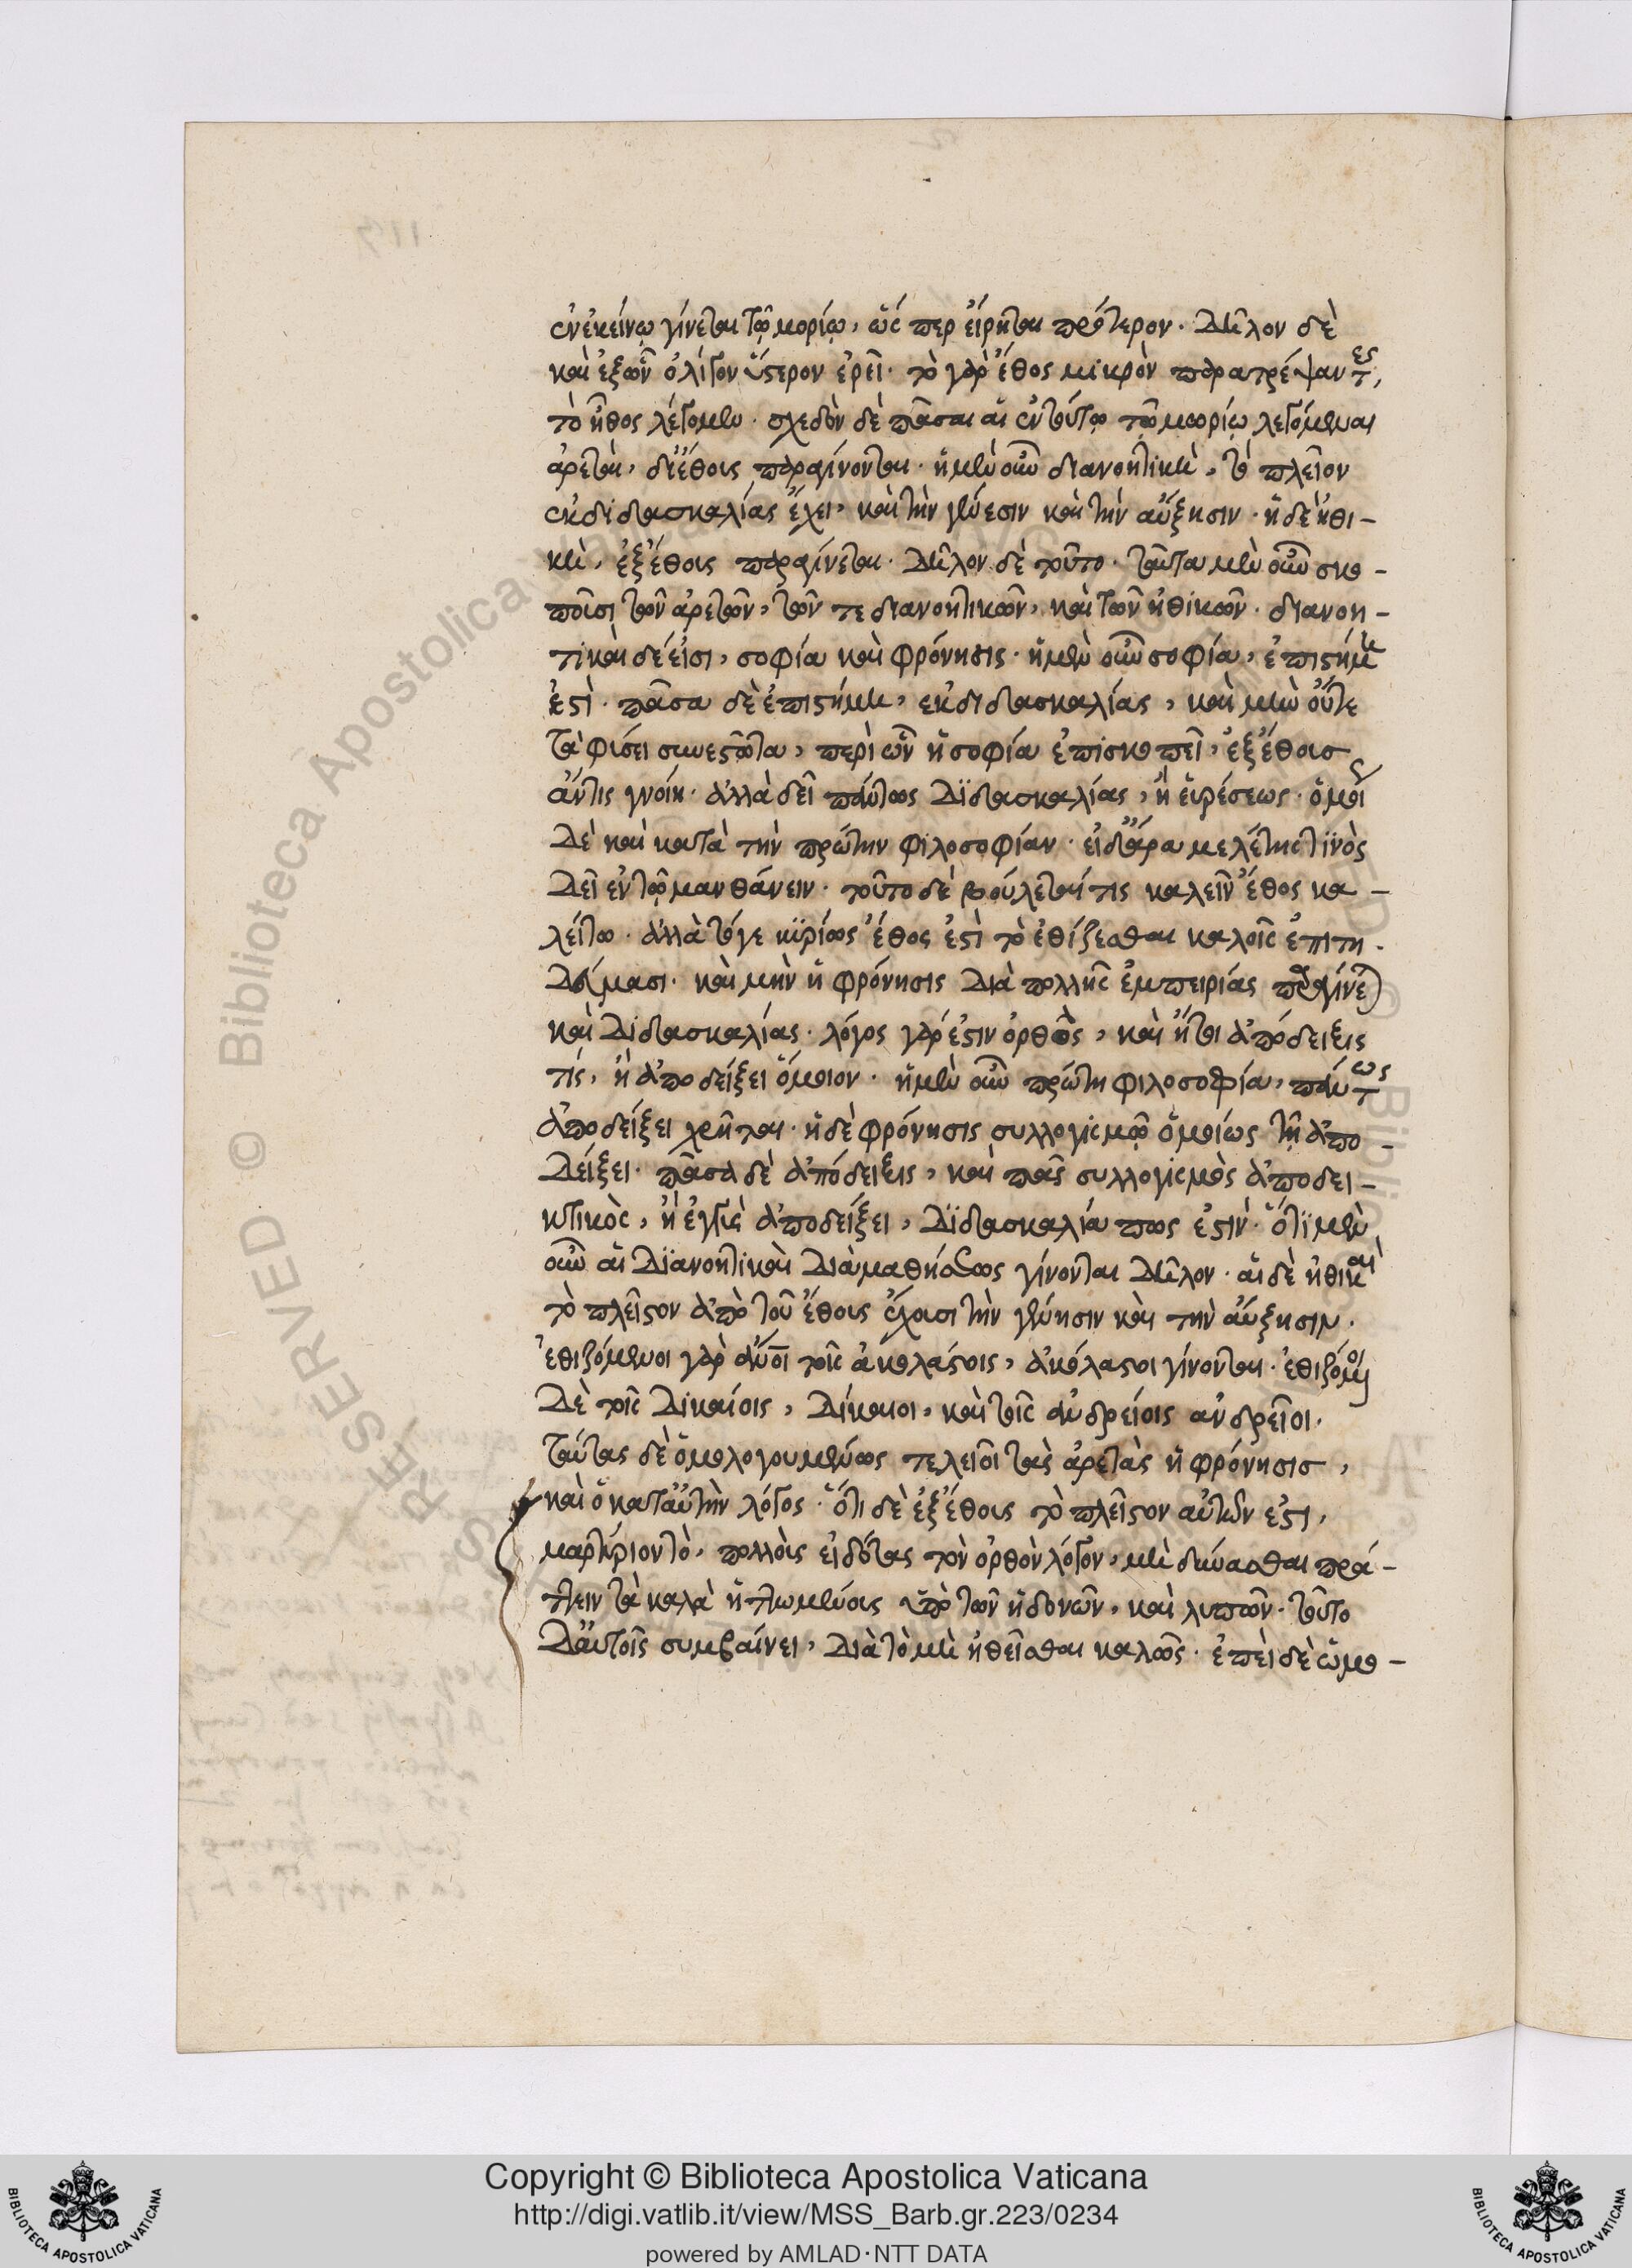 ἐν ἐκείνῳ γίνεται τῷ μορίῳ, ὥς περ εἴρηται πρότερον. Δῆλον δὲ
καὶ ἐξ ὧν ὀλίγον ὕστερον ἐρεῖ. τὸ γὰρ ἔθος μικρὸν παρατρέψαντες,
τὸ ἦθος λέγομεν. σχεδὸν δὲ πᾶσαι αἱ ἐν τούτῳ τῷ μορίῳ λεγόμεναι
ἀρεταὶ, δι' ἔθους παραγίνονται. ἡ μὲν οὖν διανοητικὴ, τὸ πλεῖον
ἐκ διδασκαλίας ἔχει, καὶ τὴν γένεσιν καὶ τὴν αὔξησιν. ἡ δὲ ἠθι-
κὴ, ἐξ ἔθους παραγίνεται. Δῆλον δὲ τοῦτο. ταῦτα μὲν οὖν σκο-
ποῖσι τῶν ἀρετῶν, τῶν τε διανοητικῶν, καὶ τῶν ἠθικῶν. διανοη-
τικαὶ δέ εἰσι, σοφία καὶ φρόνησις. ἡ μὲν οὖν σοφία, ἐπιστήμη
ἐστὶ. πᾶσα δὲ ἐπιστήμη, ἐκ διδασκαλίας, καὶ μὴν οὔτε
τὰ φύσει συνεστῶτα, περὶ ὧν ἡ σοφία ἐπισκοπεῖ, ἐξ ἔθους
ἄν τις γνοίη. ἀλλὰ δεῖ πάντως Διδασκαλίας, ἢ εὑρέσεως. ὅμοι
Δὲ καὶ κατὰ τὴν πρώτην φιλοσοφίαν. εἰ δ' ἄρα μελέτης τινὸς
Δεῖ ἐν τῷ μανθάνειν. τοῦτο δὲ βούλεταί τις καλεῖν ἔθος κα-
λείτω. ἀλλὰ τόγε κυρίως ἔθος ἐστὶ τὸ ἐθίζεσθαι καλοῖς ἐπιτη-
Δεύμασι. καὶ μὴν ἡ φρόνησις Διὰ πολλῆς ἐμπειρίας παραγίνεται
καὶ Διδασκαλίας. λόγος γάρ ἐστιν ὀρθὸς, καὶ ἤτοι ἀπόδειξις
τίς, ἢ ἀποδείξει ὅμοιον. ἡ μὲν οὖν πρώτη φιλοσοφία, πάντως
ἀποδείξει χρῆται. ἡ δὲ φρόνησις συλλογισμῷ ὁμοίως τῇ ἀπο-
Δείξει. πᾶσα δὲ ἀπόδειξις, καὶ πᾶς συλλογισμὸς ἀποδει-
κτικὸς, ἢ ἐγγὺς ἀποδείξει, Διδασκαλία πως ἐστίν. ὅτι μὲν
οὖν αἱ Διανοητικαὶ Διὰ μαθήσεως γίνονται Δῆλον. αἱ δὲ ἠθικαὶ
τὸ πλεῖστον ἀπὸ τοῦ ἔθους ἔχουσι τὴν γέννησιν καὶ τὴν αὔξησιν.
ἐθιζόμενοι γὰρ ἔνιοι τοῖς ἀκολάστοις, ἀκόλαστοι γίνονται. ἐθιζόμενοι
Δὲ τοῖς Δικαίοις, Δίκαιοι, καὶ τοῖς ἀνδρείοις ἀνδρεῖοι.
ταύτας δὲ ὁμολογουμένως τελειοῖ τὰς ἀρετὰς ἡ φρόνησις,
καὶ ὁ κατ' αὐτὴν λόγος. ὅτι δὲ ἐξ ἔθους τὸ πλεῖστον αὐτῶν ἐστι,
μαρτύριον τὸ, πολλοὺς εἰδότας τὸν ὀρθὸν λόγον, μὴ δύνασθαι πρά-
ττειν τὰ καλὰ ἡττωμένους ὑπὸ τῶν ἡδονῶν, καὶ λυπῶν. τοῦτο
Δ' αὐτοῖς συμβαίνει, Διὰ τὸ μὴ ἠθεῖσθαι καλῶς. ἐπεὶ δὲ ὡμο-
Copyright © Biblioteca Apostolica Vaticana
http://digi.vatlib.it/view/MSS_Barb.gr.223/0234
powered by AMLAD·NTT DATA